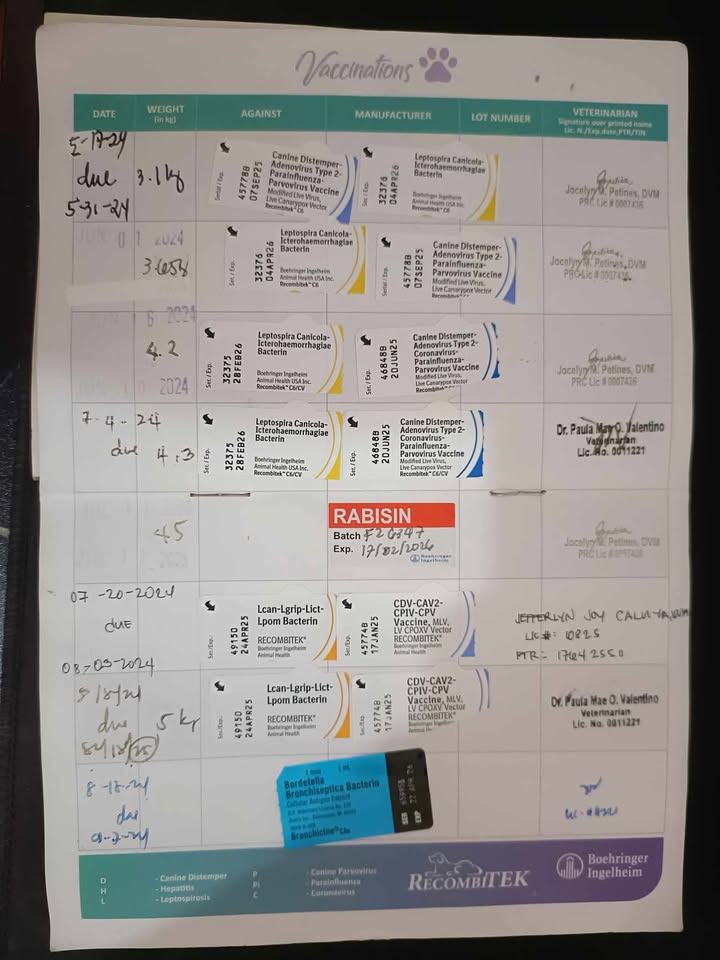 Vaccinations
DATE WEIGHT (in kg) AGAINST MANUFACTURER LOT NUMBER VETERINARIAN
Signature over printed name
Lic. N./Exp.date,PTR/TIN
5-17-24
due 3.1kg
5-31-24
Serial / Exp.
45778B
07SEP25
Canine Distemper-
Adenovirus Type 2-
Parainfluenza-
Parvovirus Vaccine
Modified Live Virus,
Live Canarypox Vector
Recombitek C6
Ser. / Exp.
32376
04APR26
Leptospira Canicola-
Icterohaemorrhagiae
Bacterin
Boehringer Ingelheim
Animal Health USA Inc.
Recombitek C6
Jocelyn M. Petines, DVM
PRC Lic # 0007436
2024
Ser. / Exp.
32376
04APR26
Leptospira Canicola-
Icterohaemorrhagiae
Bacterin
Boehringer Ingelheim
Animal Health USA Inc.
Recombitek C6
Serial / Exp.
45778B
07SEP25
Canine Distemper-
Adenovirus Type 2-
Parainfluenza-
Parvovirus Vaccine
Modified Live Virus,
Live Canarypox Vector
Jocelyn M. Petines, DVM
PRC Lic # 0007436
2024
4.2
2024
Ser. / Exp.
32375
28FEB26
Leptospira Canicola-
Icterohaemorrhagiae
Bacterin
Boehringer Ingelheim
Animal Health USA Inc.
Recombitek C6/CV
Ser. / Exp.
46848B
20JUN25
Canine Distemper-
Adenovirus Type 2-
Coronavirus-
Parainfluenza-
Parvovirus Vaccine
Modified Live Virus,
Live Canarypox Vector
Recombitek C6/CV
Jocelyn M. Petines, DVM
PRC Lic # 0007436
7-4-24
due 4.3
Ser. / Exp.
32375
28FEB26
Leptospira Canicola-
Icterohaemorrhagiae
Bacterin
Boehringer Ingelheim
Animal Health USA Inc.
Recombitek C6/CV
Ser. / Exp.
46848B
20JUN25
Canine Distemper-
Adenovirus Type 2-
Coronavirus-
Parainfluenza-
Parvovirus Vaccine
Modified Live Virus,
Live Canarypox Vector
Recombitek C6/CV
Dr. Paula Mae O. Valentino
Veterinarian
Lic. No. 0011221
RABISIN
Batch
Exp. 17/02/2026
Boehringer
Ingelheim
Jocelyn M. Petines, DVM
07-20-2024
DUE
08-03-2024
Ser./Exp.
49150
24APR25
Lcan-Lgrip-Lict-
Lpom Bacterin
RECOMBITEK®
Boehringer Ingelheim
Animal Health
Ser./Exp.
45774B
17JAN25
CDV-CAV2-
CPIV-CPV
Vaccine, MLV,
LV CPOXV Vector
RECOMBITEK®
Boehringer Ingelheim
Animal Health
JEFFERLYN JOY
LIC#: 10825
PTR= 17642550
due 5 kg
Ser./Exp.
49150
24APR25
Lcan-Lgrip-Lict-
Lpom Bacterin
RECOMBITEK®
Boehringer Ingelheim
Animal Health
Ser./Exp.
45774B
17JAN25
CDV-CAV2-
CPIV-CPV
Vaccine, MLV,
LV CPOXV Vector
RECOMBITEK®
Boehringer Ingelheim
Dr. Paula Mae O. Valentino
Veterinarian
Lic. No. 0011221
due
1 dose 1 mL
Bordetella
Bronchiseptica Bacterin
Cellular Antigen Extract
Bronchicine® CAe
SER
EXP 22 APR 26
D - Canine Distemper P - Canine Parvovirus
H - Hepatitis Pi - Parainfluenza
L - Leptospirosis C - Coronavirus
RECOMBITEK
Boehringer
Ingelheim